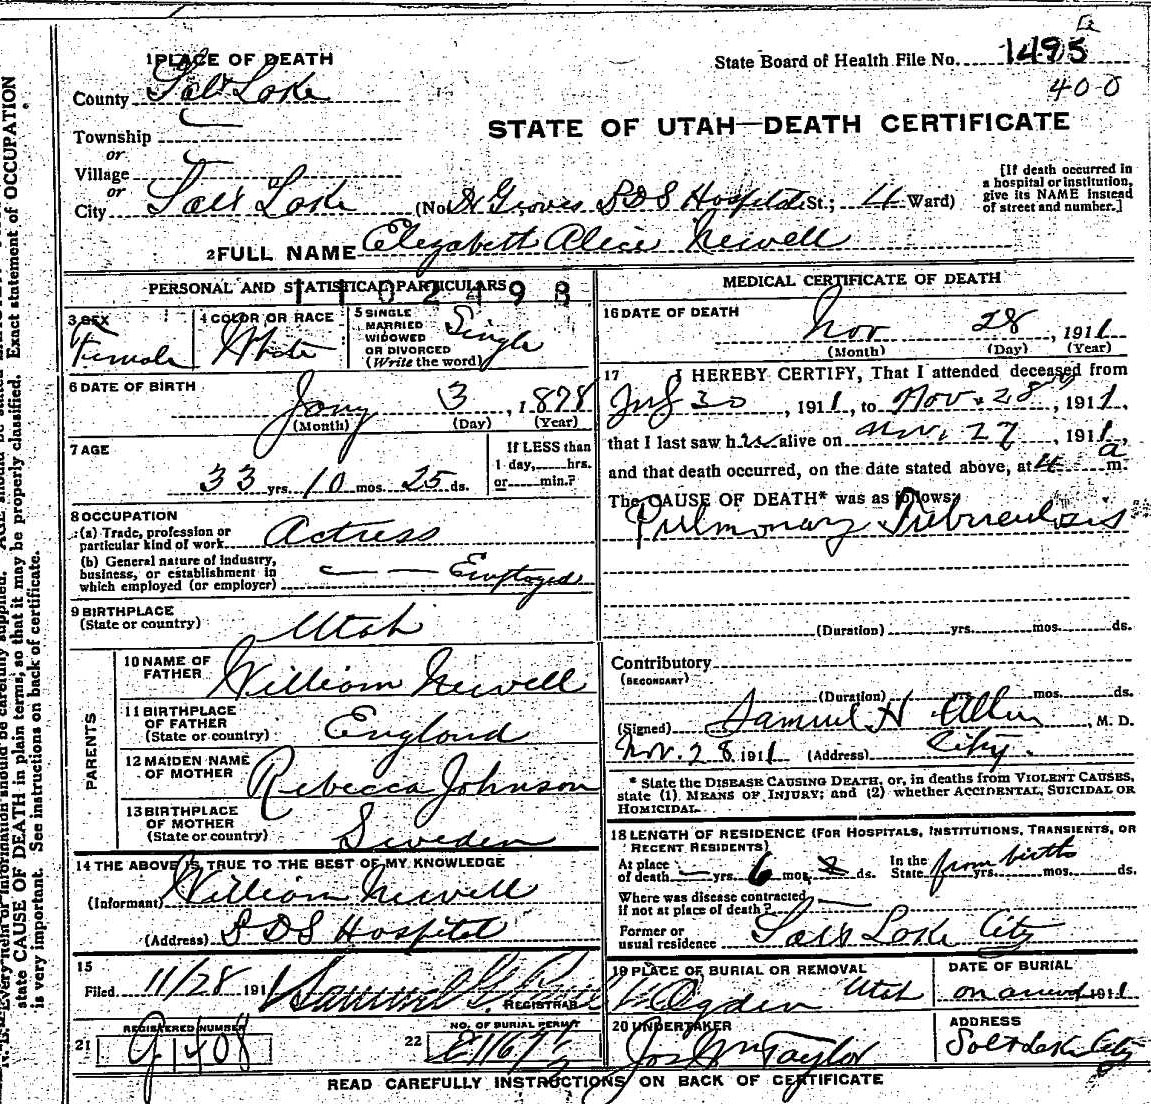 1 PLACE OF DEATH
State Board of Health File No. 1495
County Salt Lake
400
Township
STATE OF UTAH—DEATH CERTIFICATE
or
Village
or
City Salt Lake (No Groves LDS Hospital St.; 4 Ward)
[If death occurred in
a hospital or institution,
give its NAME instead
of street and number.]
2 FULL NAME Elizabeth Alice Newell
PERSONAL AND STATISTICAL PARTICULARS
3 SEX Female
4 COLOR OR RACE White
5 SINGLE
MARRIED
WIDOWED
OR DIVORCED
(Write the word) Single
6 DATE OF BIRTH
Jany 3, 1878
(Month) (Day) (Year)
7 AGE
33 yrs. 10 mos. 25 ds.
If LESS than
1 day, hrs.
or min.?
8 OCCUPATION
(a) Trade, profession or
particular kind of work Actress
(b) General nature of industry,
business, or establishment in
which employed (or employer) Employed
9 BIRTHPLACE
(State or country) Utah
PARENTS
10 NAME OF
FATHER William Newell
11 BIRTHPLACE
OF FATHER
(State or country) England
12 MAIDEN NAME
OF MOTHER Rebecca Johnson
13 BIRTHPLACE
OF MOTHER
(State or country) Sweden
14 THE ABOVE IS TRUE TO THE BEST OF MY KNOWLEDGE
(Informant) William Newell
(Address) LDS Hospital
15
Filed 11/28 1911 Samuel G.
REGISTRAR
REGISTERED NUMBER
21 G1408
NO. OF BURIAL PERMIT
22
MEDICAL CERTIFICATE OF DEATH
16 DATE OF DEATH
Nov 28, 1911
(Month) (Day) (Year)
17 I HEREBY CERTIFY, That I attended deceased from
30, 1911, to Nov. 28, 1911,
that I last saw h alive on Nov. 27, 1911,
and that death occurred, on the date stated above, at 4 a m.
The CAUSE OF DEATH* was as follows:
Pulmonary Tuberculosis
(Duration) yrs. mos. ds.
Contributory
(SECONDARY)
(Duration) mos. ds.
(Signed) Samuel H Allen, M. D.
Nov. 28 1911 (Address) City.
* State the DISEASE CAUSING DEATH, or, in deaths from VIOLENT CAUSES,
state (1) MEANS OF INJURY; and (2) whether ACCIDENTAL, SUICIDAL OR
HOMICIDAL.
18 LENGTH OF RESIDENCE (FOR HOSPITALS, INSTITUTIONS, TRANSIENTS, OR
RECENT RESIDENTS)
At place
of death — yrs. 6 mos. ds.
In the
State from birth yrs. mos. ds.
Where was disease contracted,
if not at place of death? —
Former or
usual residence Salt Lake City
19 PLACE OF BURIAL OR REMOVAL
Ogden Utah
DATE OF BURIAL
1911
20 UNDERTAKER
Jos Wm Taylor
ADDRESS
Salt Lake City
READ CAREFULLY INSTRUCTIONS ON BACK OF CERTIFICATE
state CAUSE OF DEATH in plain terms, so that it may be properly classified. Exact statement of OCCUPATION
is very important. See instructions on back of certificate.